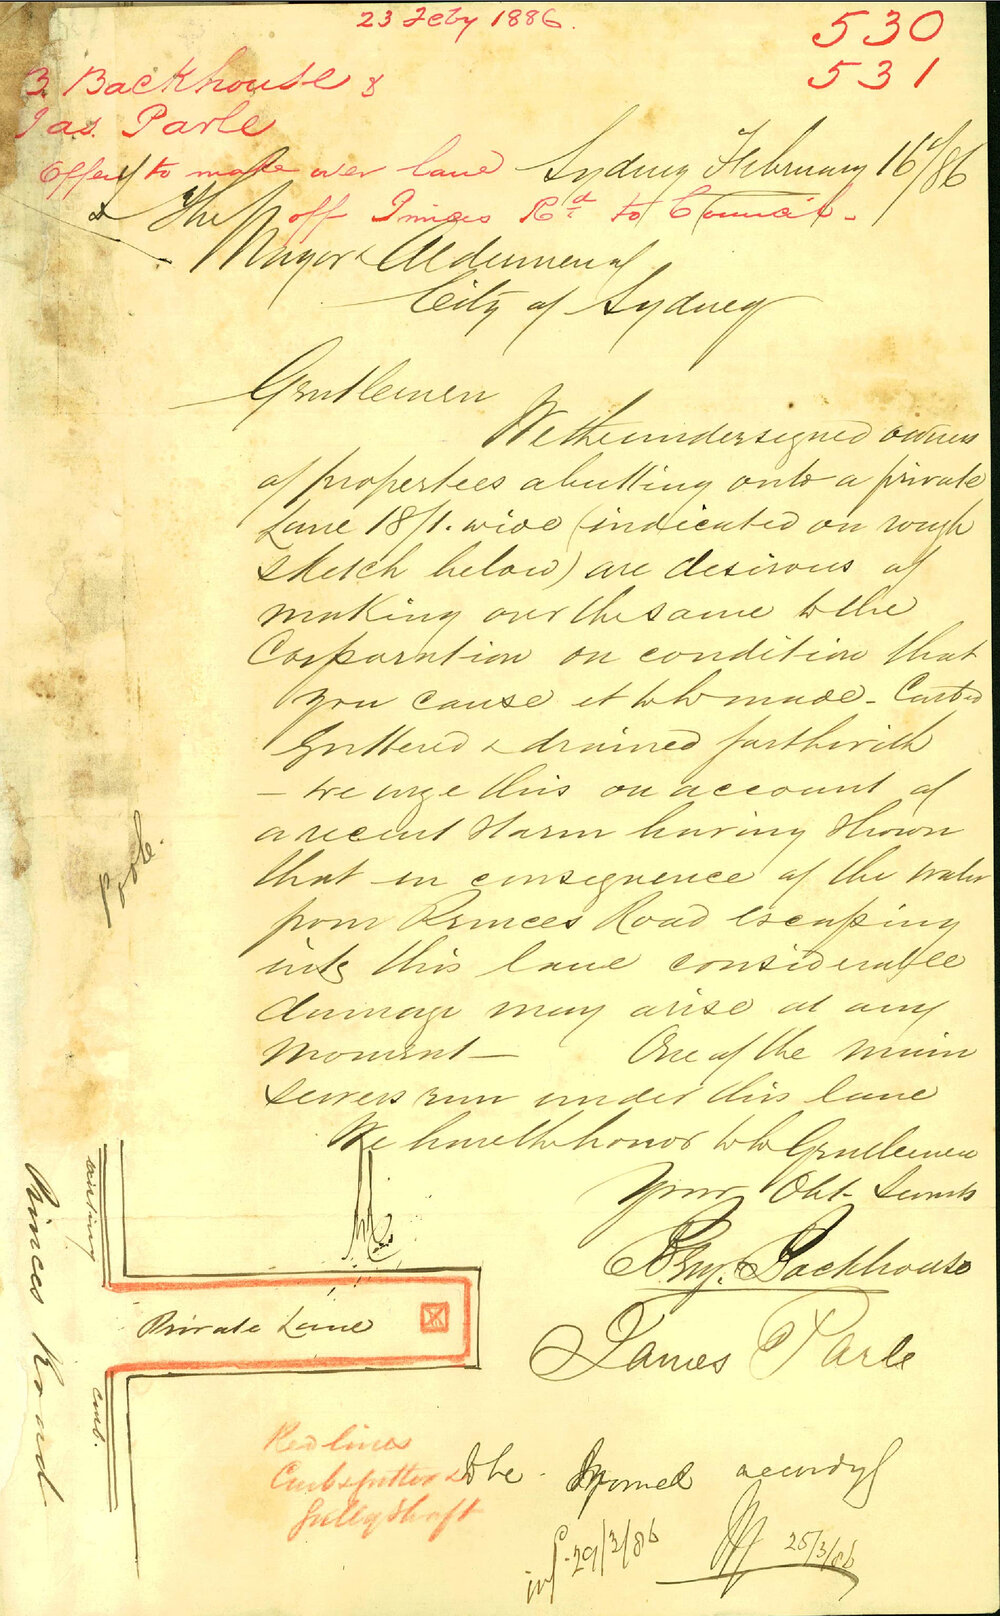 23 Feby 1886.
530
531
B. Backhouse &
Jas. Parle
Offers to make over lane
off Princes Rd to Council -
Sydney February 16th/86
The
Mayor & Aldermen of
City of Sydney
Gentlemen
We the undersigned owners
of properties abutting onto a private
Lane 18ft. wide (indicated on rough
sketch below) are desirous of
making over the same to the
Corporation on condition that
you cause it to be made - Curbed
Guttered & drained forthwith
- we urge this on account of
a recent storm having shown
that in consequence of the water
from Princes Road escaping
into this lane considerable
damage may arise at any
moment - One of the main
sewers run under this lane
We have the honor to be Gentlemen
Your Obt. Servts
Benj. Backhouse
James Parle
Princes Road
existing
curb.
Private Lane
Red lines
Curb & gutter &
Gully Shaft
To be informed accordgly
25/3/86
inf. 29/3/86